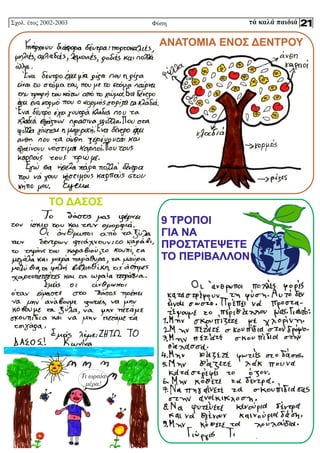 Σχολ. έτος 2002-2003
Φύση
τά καλά παιδιά 21
Υπάρχουν διάφορα δέντρα: πορτοκαλιές,
μηλιές, αχλαδιές, λεμονιές, ροδιές και πολλά
άλλα.
Ένα δέντρο έχει μια ρίζα που η ρίζα
είναι το στόμα του, που με το στόμα παίρνει
την τροφή του κάτω από το χώμα. Ένα δέντρο
έχει ένα κορμό που ο κορμός στηρίζει τα κλαδιά.
Ένα δέντρο έχει χοντρά κλαδιά που τα
κλαδιά βγάζουν πράσινα φύλλα. Που στα
φύλλα η μαγειρική. Ένα δέντρο έχει
άνθη που τα άνθη γερνούνται και
βγαίνουν νόστιμοι καρποί. Που τους
καρπούς τους τρώμε.
Εγώ θα ήθελα πάρα πολλά δέντρα
που να έχουν νόστιμους καρπούς στον
κήπο μου. Ευγενία
ΑΝΑΤΟΜΙΑ ΕΝΟΣ ΔΕΝΤΡΟΥ
φύλλα
άνθη
καρποί
κλαδιά
κορμός
ρίζες
ΤΟ ΔΑΣΟΣ
Το δάσος μας φέρνει
τον ίσκιο του και την ομορφιά.
Οι άνθρωποι από τα ξύλα
των δέντρων φτιάχνουν το καράβι,
το τιμόνι του καραβιού, το κουπί, τα
μεγάλα και μικρά παράθυρα, τα μαύρα
μολύβια, τη ψηλή βιβλιοθήκη, τις άσπρες
χαρτοπετσέτες και τα ωραία τετράδια.
Εμείς οι άνθρωποι
όταν είμαστε στο δάσος πρέπει
να μην ανάβουμε φωτιές, να μην
κόβουμε τα ξύλα, να μην πετάμε
σκουπίδια και να μην πετάμε τα
τσιγάρα.
Εμείς λέμε: ΖΗΤΩ ΤΟ
ΔΑΣΟΣ!
Κων/να
Τι ωραία
μέρα!
9 ΤΡΟΠΟΙ
ΓΙΑ ΝΑ
ΠΡΟΣΤΑΤΕΨΕΤΕ
ΤΟ ΠΕΡΙΒΑΛΛΟΝ
Οι άνθρωποι πολλές φορές
καταστρέφουν τη φύση. Αυτό δεν
είναι σωστό. Πρέπει να προστα-
τέψουμε το περιβάλλον μας. Γι' αυτό:
1. Μην σκουπίζετε με χλορίνη
2. Μην πετάτε σκουπίδια στον δρόμο.
3. Μην πετάτε σκουπίδια στην
θάλασσα.
4. Μην βάζετε φωτιές στο δάσος.
5. Μην βάζετε λακ που να
καταστρέφει το όζον.
6. Μην κόβετε τα δέντρα.
7. Να πηγαίνετε τα σκουπίδια σας
στην ανακύκλωση.
8. Να φυτεύετε καινούρια δέντρα
και να βγαίνουν καινούρια δάση.
9. Μην κόβετε τα λουλούδια.
Γιώργος Τ.